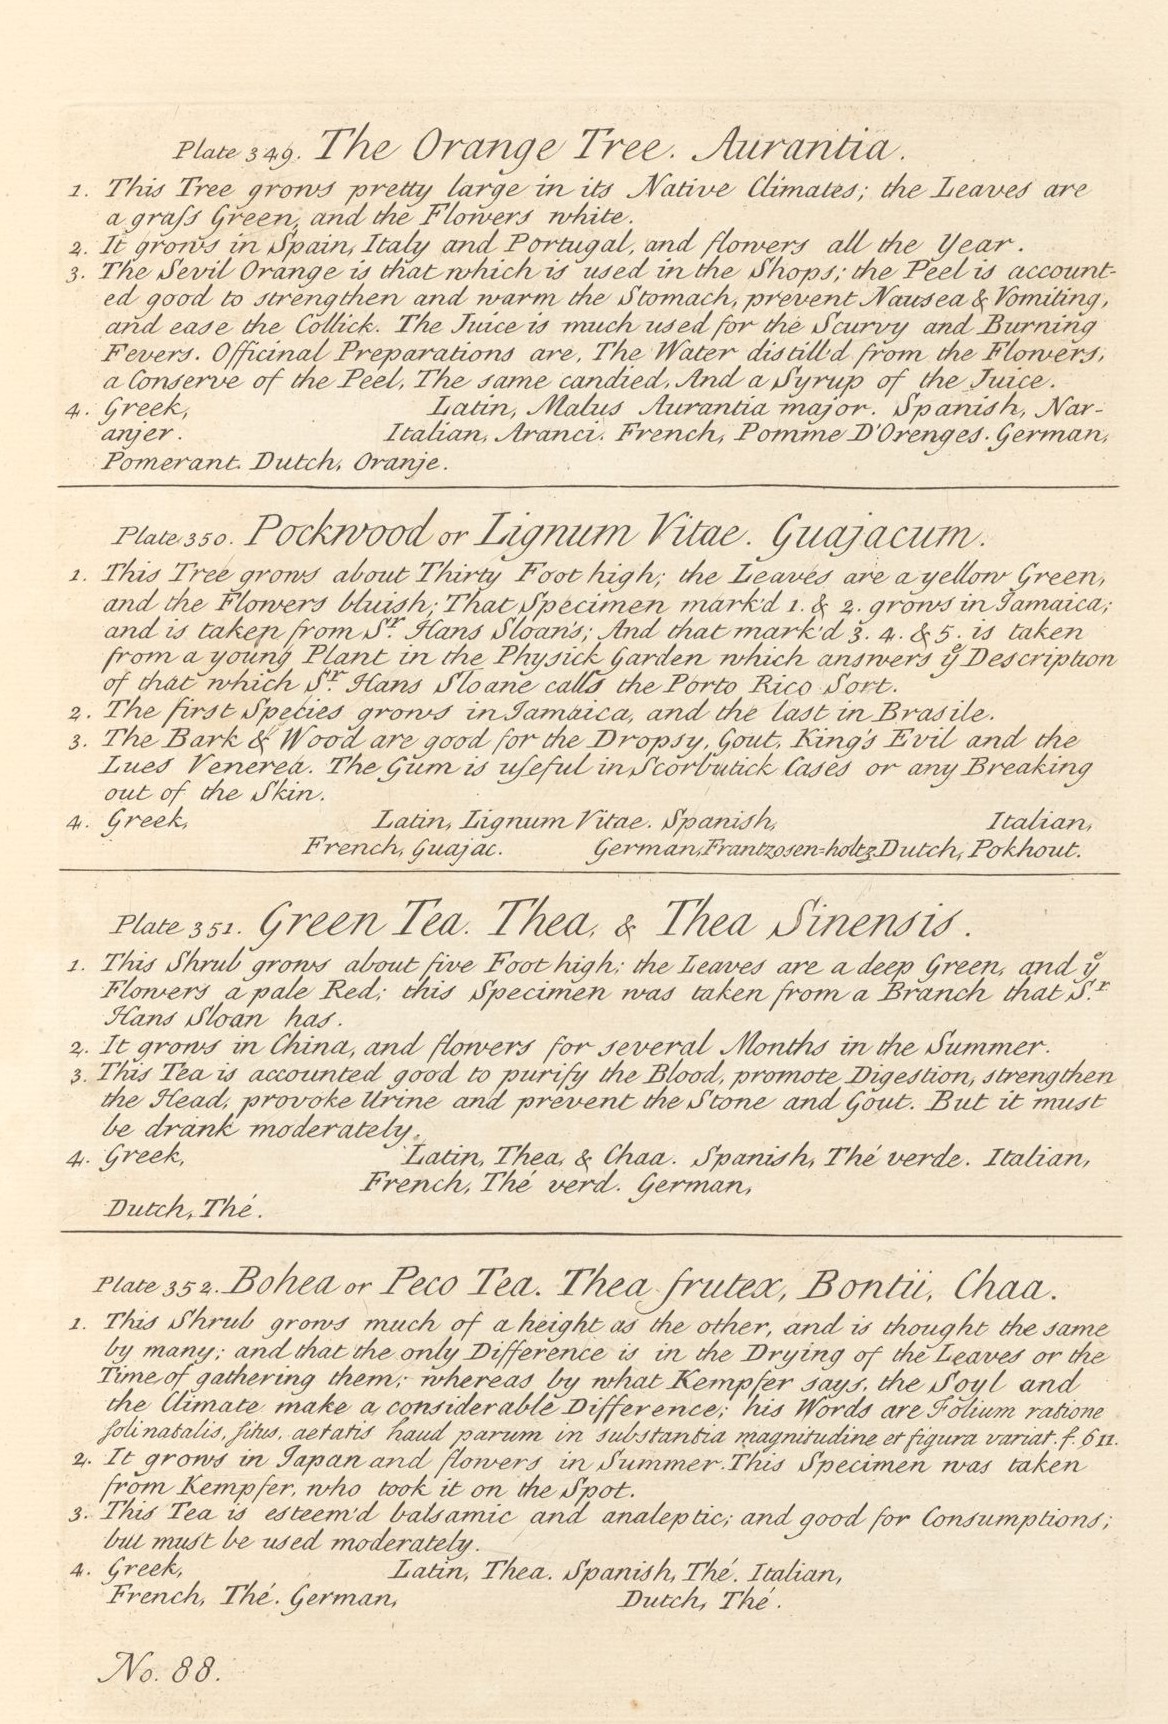 Plate 349. The Orange Tree. Aurantia.
1. This Tree grows pretty large in its Native Climates; the Leaves are
a graſs Green, and the Flowers white.
2. It grows in Spain, Italy and Portugal, and flowers all the Year.
3. The Sevil Orange is that which is used in the Shops; the Peel is account-
ed good to strengthen and warm the Stomach, prevent Nausea & Vomiting,
and ease the Collick. The Juice is much used for the Scurvy and Burning
Fevers. Officinal Preparations are, The Water distill'd from the Flowers,
a Conserve of the Peel, The same candied, And a Syrup of the Juice.
4. Greek, Latin, Malus Aurantia major. Spanish, Nar-
anjer. Italian, Aranci. French, Pomme D'Orenges. German,
Pomerant. Dutch, Oranje.
Plate 350. Pockwood or Lignum Vitae. Guajacum.
1. This Tree grows about Thirty Foot high; the Leaves are a yellow Green,
and the Flowers bluish; That Specimen mark'd 1. & 2. grows in Jamaica;
and is taken from Sr. Hans Sloan's; And that mark'd 3. 4. & 5. is taken
from a young Plant in the Physick Garden which answers ye Description
of that which Sr. Hans Sloane calls the Porto Rico Sort.
2. The first Species grows in Jamaica, and the last in Brasile.
3. The Bark & Wood are good for the Dropsy, Gout, King's Evil and the
Lues Venerea. The Gum is uſeful in Scorbutick Cases or any Breaking
out of the Skin.
4. Greek, Latin, Lignum Vitae. Spanish, Italian,
French, Guajac. German, Frantzosen=holtz Dutch, Pokhout.
Plate 351. Green Tea. Thea, & Thea Sinensis.
1. This Shrub grows about five Foot high; the Leaves are a deep Green, and ye
Flowers a pale Red; this Specimen was taken from a Branch that Sr.
Hans Sloan has.
2. It grows in China, and flowers for several Months in the Summer.
3. This Tea is accounted good to purify the Blood, promote Digestion, strengthen
the Head, provoke Urine and prevent the Stone and Gout. But it must
be drank moderately.
4. Greek, Latin, Thea, & Chaa. Spanish, Thé verde. Italian,
French, Thé verd. German,
Dutch, Thé.
Plate 352. Bohea or Peco Tea. Thea frutex, Bontii, Chaa.
1. This Shrub grows much of a height as the other, and is thought the same
by many; and that the only Difference is in the Drying of the Leaves or the
Time of gathering them; whereas by what Kempfer says, the Soyl and
the Climate make a considerable Difference; his Words are Folium ratione
ſoli natalis, ſitus, aetatis haud parum in substantia magnitudine et figura variat. f. 611.
2. It grows in Japan and flowers in Summer. This Specimen was taken
from Kempfer, who took it on the Spot.
3. This Tea is esteem'd balsamic and analeptic; and good for Consumptions;
but must be used moderately.
4. Greek, Latin, Thea. Spanish, Thé. Italian,
French, Thé. German, Dutch, Thé.
No. 88.